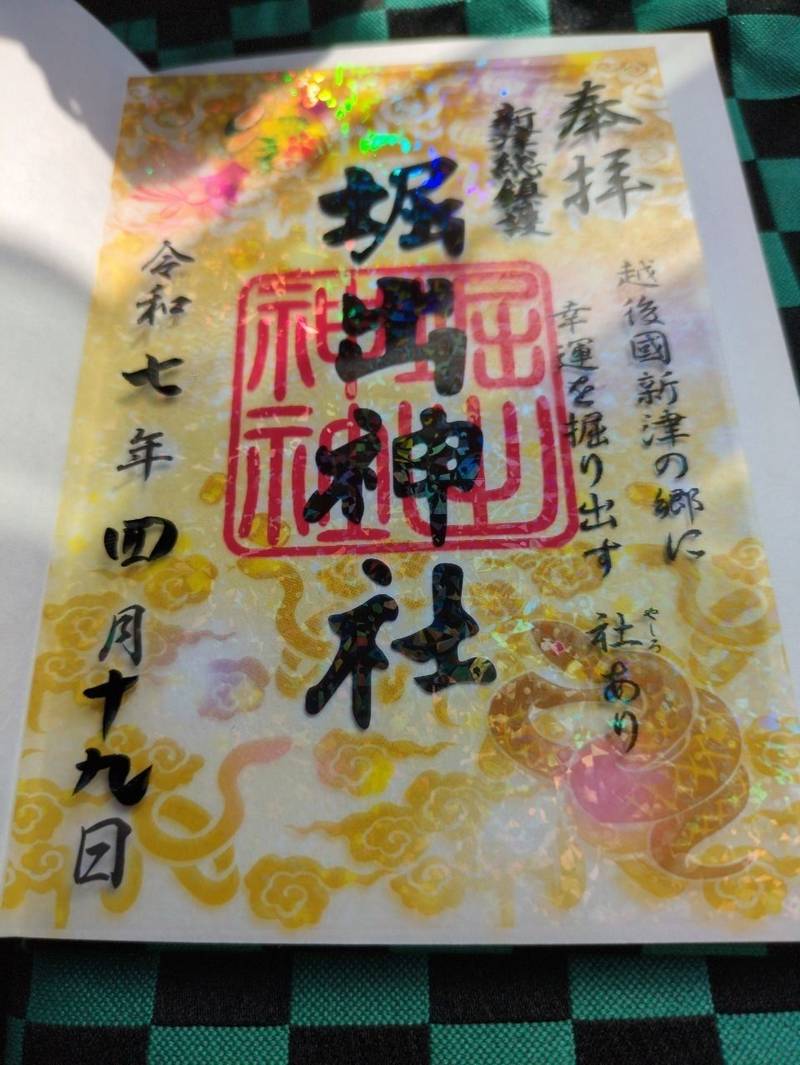 奉拝
新津総鎮護
越後國新津の郷に
幸運を掘り出す
社あり
やしろ
堀出神社
堀出神社
令和七年四月十九日